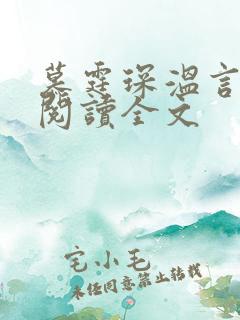 墓霆琛溫言
閱讀全文
宅小毛
未经同意禁止转载